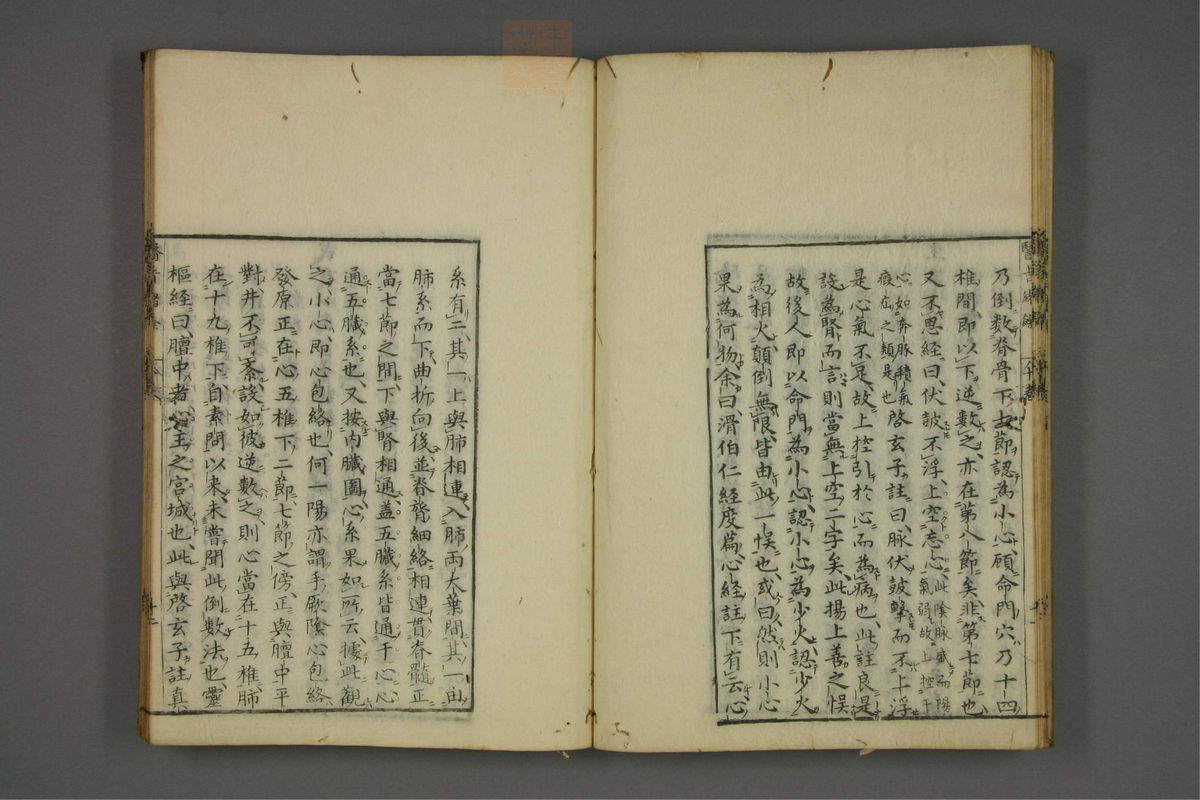 乃倒數脊骨下七節認為小心顧命門穴乃十四
椎間即以下逆數之亦在第八節矣非第七節也
又不思經曰伏皷不浮上空志心此陰脉盛而陽氣弱故上控于
心如奔脉積氣疲疝之類是也啓玄子註曰脉伏皷擊而不上浮
是心氣不足故上控引於心而為病也此註良是
設為腎而言則當無上空二字矣此揚上善之悞
故後人即以命門為小心認小心為少火認少火
為相火顛倒無限皆由此一悞也或曰然則小心
果為何物余曰滑伯仁經度篇心経註下有云心
系有二其一上與肺相連入肺両大葉間其一由
肺系而下曲折向後並脊膂細絡相連貫脊髓正
當七節之間下與腎相通盖五臟系皆通于心心
通五臟系也又按内臓圖心系果如所云據此觀
之小心即心包絡也何一陽亦謂手厥隂心包絡
發原正在心五椎下二節七節之傍正與膻中平
對并不可紊設如彼逆數之則心當在十五椎肺
在十九椎下自素問以来未嘗聞此倒數法也靈
樞経曰膻中者心主之宮城也此與啓玄子註真